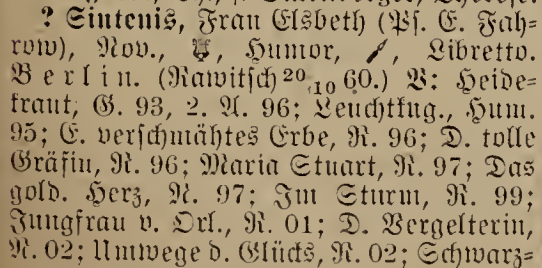 ? Sintenis, Frau Elsbeth (Ps. E. Fah=
row), Nov., Humor, Libretto.
Berlin. (Rawitsch 20 10 60.) V: Heide=
kraut, G. 93, 2. A. 96; Leuchtkug., Hum.
95; E. verschmähtes Erbe, R. 96; D. tolle
Gräfin, R. 96; Maria Stuart, R. 97; Das
gold. Herz, N. 97; Im Sturm, R. 99;
Jungfrau v. Orl., R. 01; D. Vergelterin,
R. 02; Umwege d. Glücks, R. 02; Schwarz=